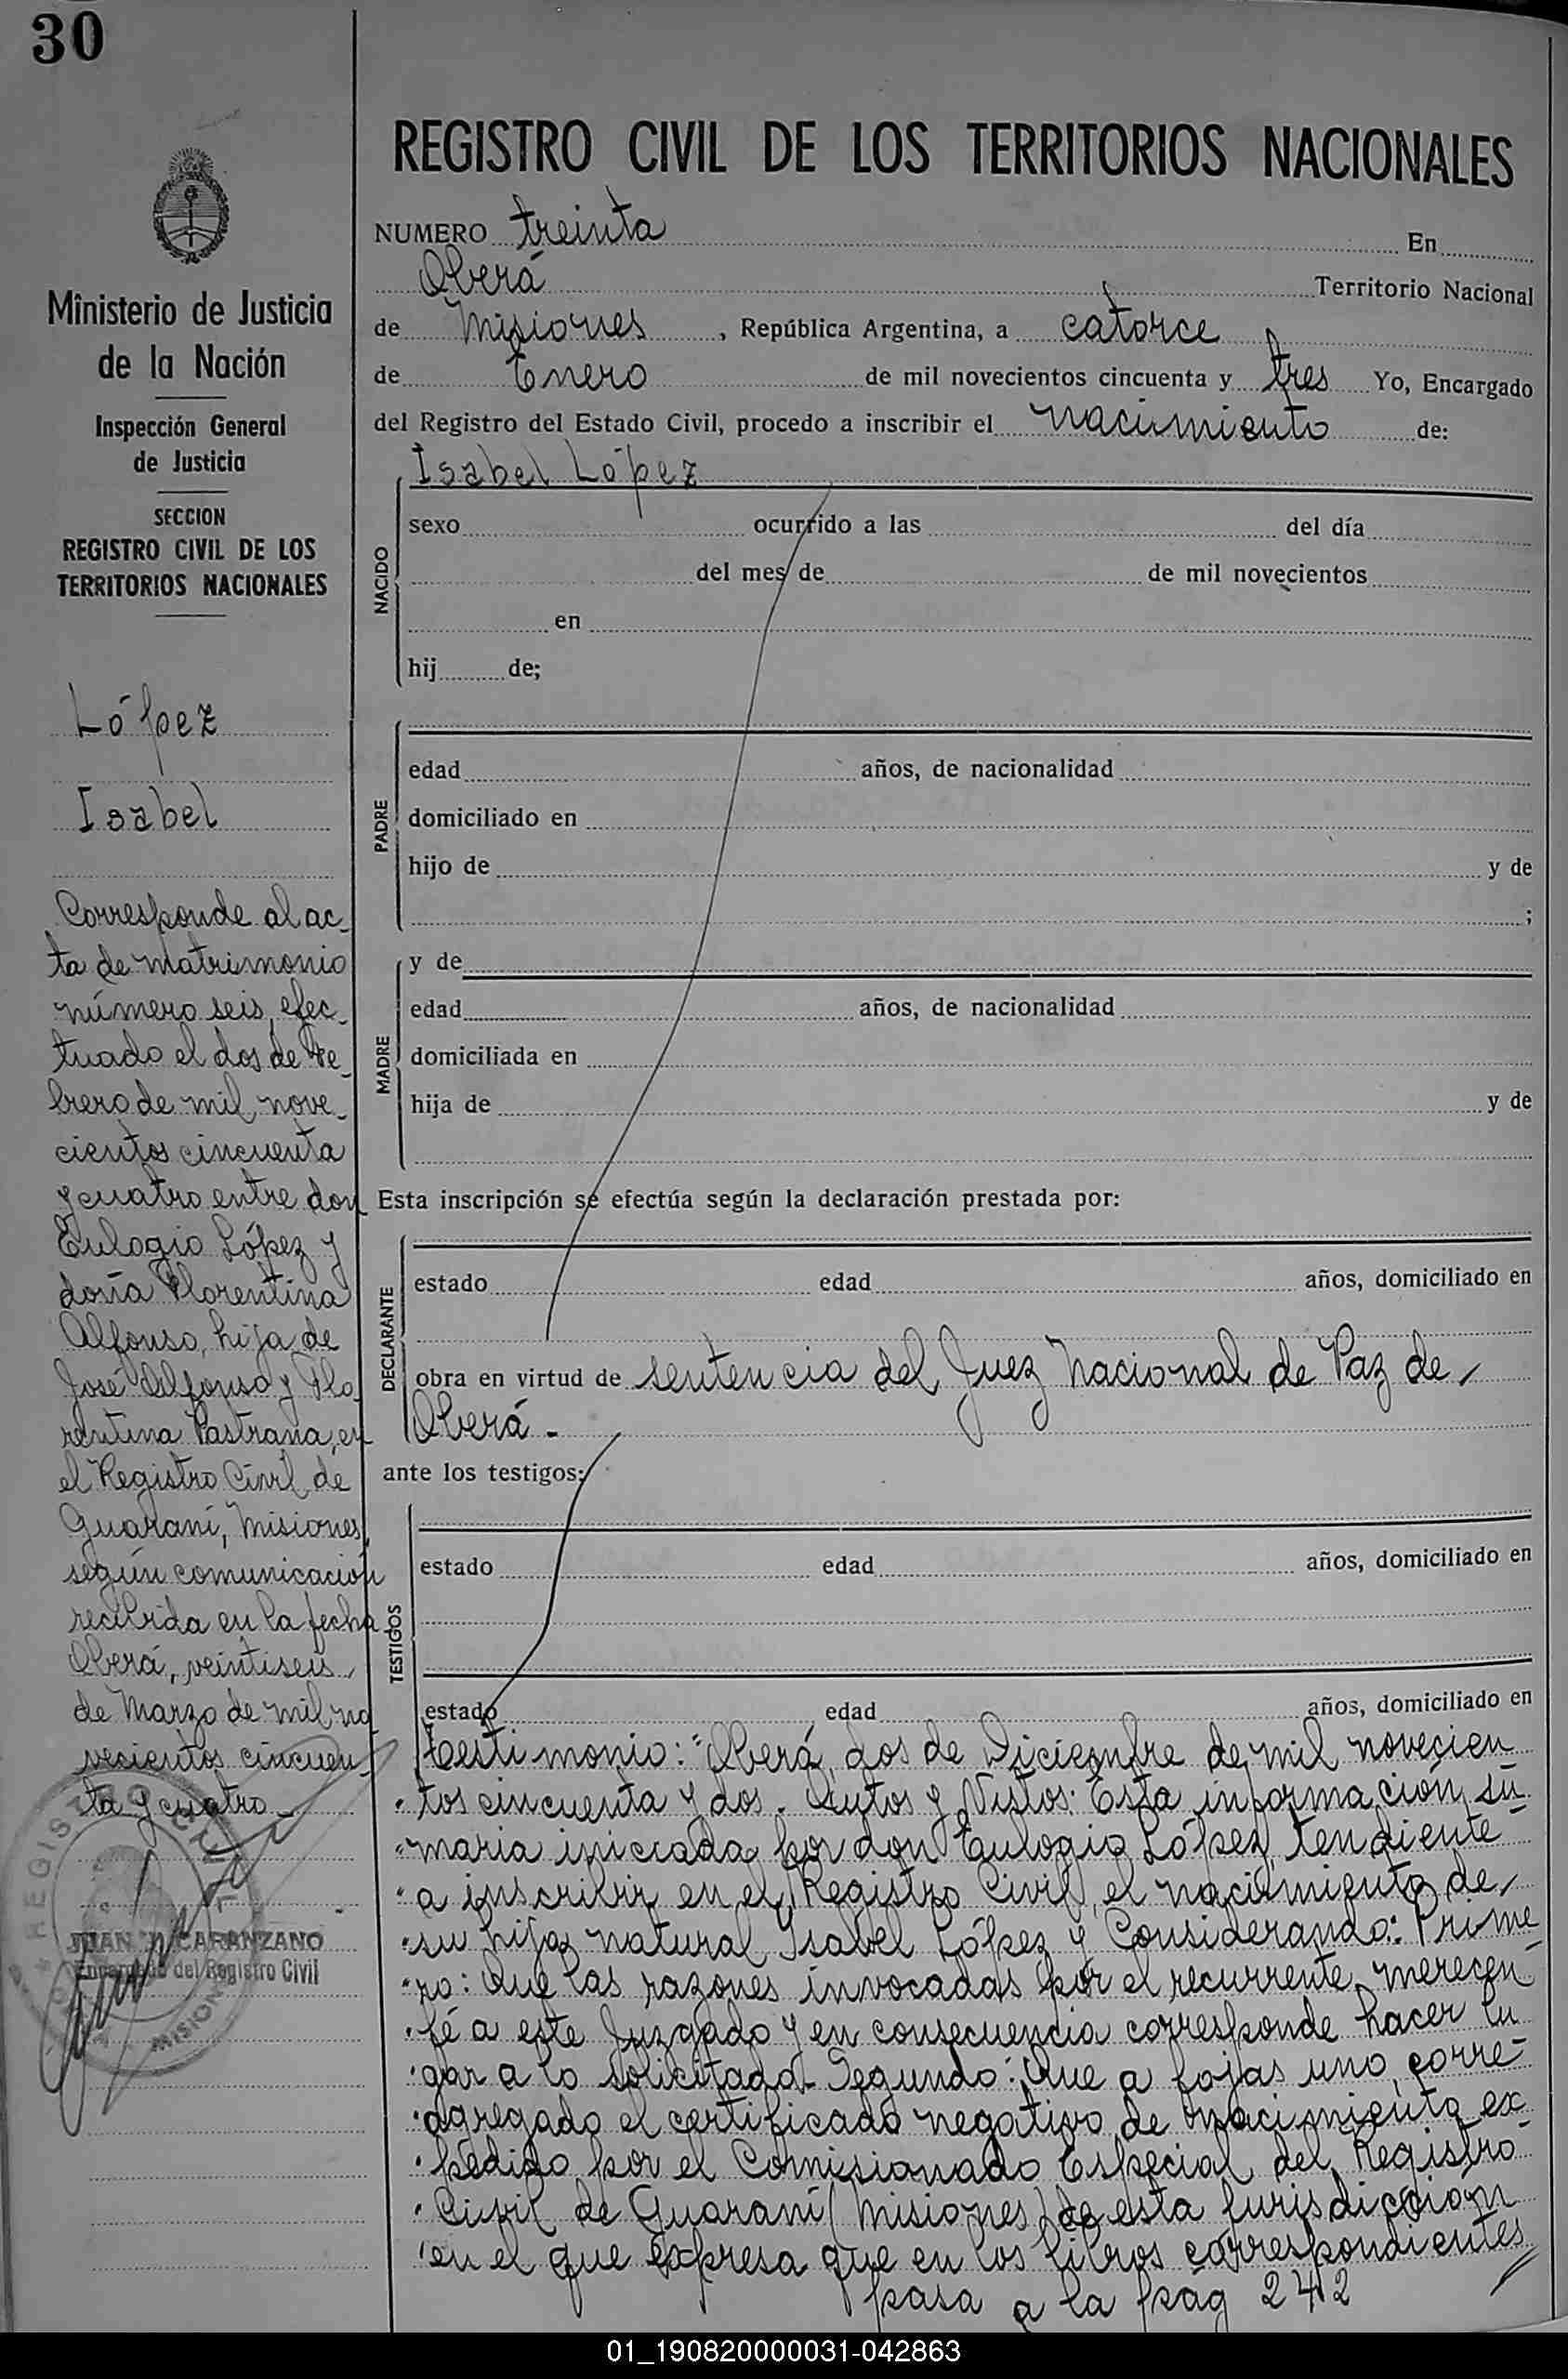 30
Ministerio de Justicia
de la Nación
Inspección General
de Justicia
SECCION
REGISTRO CIVIL DE LOS
TERRITORIOS NACIONALES
López
Isabel
Corresponde al ac-
ta de matrimonio
número seis, efec-
tuado el dos de Fe-
brero de mil nove-
cientos cincuenta
y cuatro entre don
Eulogio López y
doña Florentina
Alfonso, hija de
José Alfonso y Flo-
rentina Pastrana, en
el Registro Civil de
Guaraní, Misiones,
según comunicación
recibida en la fecha
Oberá, veintiseis
de Marzo de mil no
vecientos cincuen-
ta y cuatro.-
REGISTRO CIVIL
MISIONES
JUAN CARANZANO
Encargado del Registro Civil
REGISTRO CIVIL DE LOS TERRITORIOS NACIONALES
NUMERO treinta En
Oberá Territorio Nacional
de Misiones, República Argentina, a catorce
de Enero de mil novecientos cincuenta y tres Yo, Encargado
del Registro del Estado Civil, procedo a inscribir el nacimiento de:
Isabel López
NACIDO
sexo ocurrido a las del día
del mes de de mil novecientos
en
hij de;
PADRE
edad años, de nacionalidad
domiciliado en
hijo de y de
;
MADRE
y de
edad años, de nacionalidad
domiciliada en
hija de y de
Esta inscripción se efectúa según la declaración prestada por:
DECLARANTE
estado edad años, domiciliado en
obra en virtud de sentencia del Juez Nacional de Paz de
Oberá.-
ante los testigos:
TESTIGOS
estado edad años, domiciliado en
estado edad años, domiciliado en
Testimonio: "Oberá, dos de Diciembre de mil novecien
"tos cincuenta y dos. Autos y Vistos: Esta información su
"maria iniciada por don Eulogio López, tendiente
"a inscribir en el Registro Civil, el nacimiento de
"su hija natural Isabel López y Considerando: Prime
"ro: Que las razones invocadas por el recurrente, merecen
"fé a este Juzgado y en consecuencia corresponde hacer lu
"gar a lo solicitado.- Segundo: Que a fojas uno, corre
"agregado el certificado negativo de nacimiento ex
"pedido por el Comisionado Especial del Registro
"Civil de Guaraní (Misiones) de esta jurisdicción
"en el que expresa que en los libros correspondientes
pasa a la pág 242
01_190820000031-042863